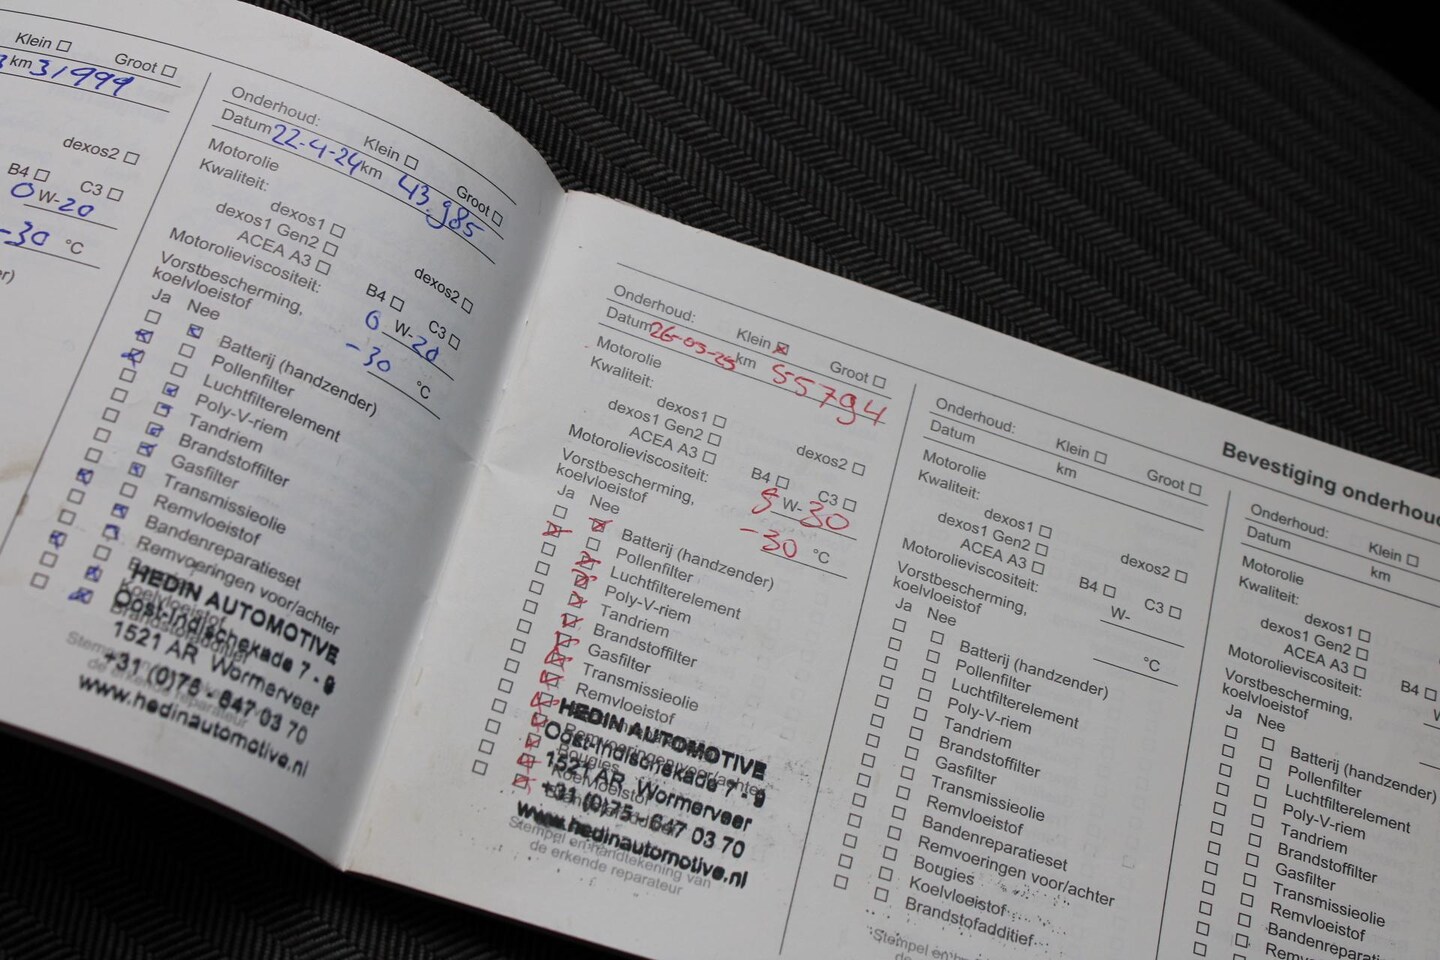 Klein ☐ Groot ☐
km 31999
dexos2 ☐
B4 ☐ C3 ☐
0 W-20
-30 °C
Onderhoud: Klein ☐ Groot ☐
Datum 22-4-24 km 43.985
Motorolie
Kwaliteit:
dexos1 ☐
dexos1 Gen2 ☐ dexos2 ☐
ACEA A3 ☐ B4 ☐ C3 ☐
Motorolieviscositeit: 0 W-20
Vorstbescherming,
koelvloeistof -30 °C
Ja Nee
Batterij (handzender)
Pollenfilter
Luchtfilterelement
Poly-V-riem
Tandriem
Brandstoffilter
Gasfilter
Transmissieolie
Remvloeistof
Bandenreparatieset
Remvoeringen voor/achter
Koelvloeistof
HEDIN AUTOMOTIVE
Oost-Indischekade 7 - 9
1521 AR Wormerveer
+31 (0)75 - 647 03 70
www.hedinautomotive.nl
de erkende reparateur
Onderhoud: Klein ☒ Groot ☐
Datum 26-03-25 km 55794
Motorolie
Kwaliteit:
dexos1 ☐
dexos1 Gen2 ☐ dexos2 ☐
ACEA A3 ☐ B4 ☐ C3 ☐
Motorolieviscositeit: 5 W-30
Vorstbescherming,
koelvloeistof -30 °C
Ja Nee
Batterij (handzender)
Pollenfilter
Luchtfilterelement
Poly-V-riem
Tandriem
Brandstoffilter
Gasfilter
Transmissieolie
Remvloeistof
Remvoeringen voor/achter
Bougies
Koelvloeistof
HEDIN AUTOMOTIVE
Oost-Indischekade 7 - 9
1521 AR Wormerveer
+31 (0)75 - 647 03 70
www.hedinautomotive.nl
Stempel en handtekening van
de erkende reparateur
Onderhoud: Klein ☐ Groot ☐
Datum km
Motorolie
Kwaliteit:
dexos1 ☐
dexos1 Gen2 ☐ dexos2 ☐
ACEA A3 ☐ B4 ☐ C3 ☐
Motorolieviscositeit: W-
Vorstbescherming,
koelvloeistof °C
Ja Nee
Batterij (handzender)
Pollenfilter
Luchtfilterelement
Poly-V-riem
Tandriem
Brandstoffilter
Gasfilter
Transmissieolie
Remvloeistof
Bandenreparatieset
Remvoeringen voor/achter
Bougies
Koelvloeistof
Brandstofadditief
Bevestiging onderhoud
Onderhoud: Klein ☐
Datum km
Motorolie
Kwaliteit:
dexos1 ☐
dexos1 Gen2 ☐
ACEA A3 ☐ B4 ☐
Motorolieviscositeit:
Vorstbescherming,
koelvloeistof
Ja Nee
Batterij (handzender)
Pollenfilter
Luchtfilterelement
Poly-V-riem
Tandriem
Brandstoffilter
Gasfilter
Transmissieolie
Remvloeistof